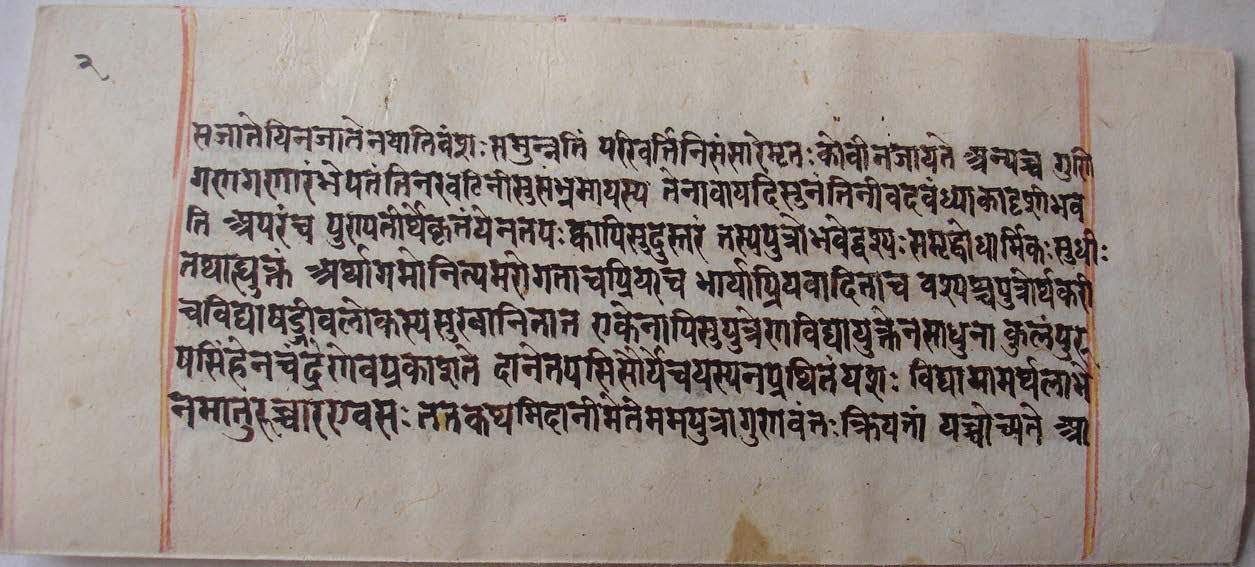 २
सजातोयेनजातेनयातिवंशःसमुन्नतिं परिवर्त्तिनिसंसारेमृतःकोवीनजायते अन्यच्च गुणि
गणगणनारंभेपतंतिनखटिनीसुसभ्रमायस्य तेनांवायदिसुनंतिनीवदवंध्याकादृशीभव
ति अपरंच पुण्यतीर्थेकृतंयेनतपःक्वापिसुदुस्तरं तस्यपुत्रोभवेद्वश्यःसमृद्धोधार्मिकःसुधीः
तथाह्युक्तं अर्थागमोनित्यमरोगताचप्रियाच भार्याप्रियवादिनाच वश्यश्चपुत्रोर्थकरी
चविद्याषड्जीवलोकस्यसुखानितात एकेनापिसुपुत्रेणविद्यायुक्तेनसाधुना कुलंपुरु
षसिंहेनचंद्रेणेवप्रकाशत दानेतपसिसौर्येचयस्यनप्रथितंयशः विद्यायामर्थलाभे
नमातुरुच्चारएवसः ततकथमिदानीमेतेममपुत्रागुणवंतःक्रियतां यच्चोच्यते आ